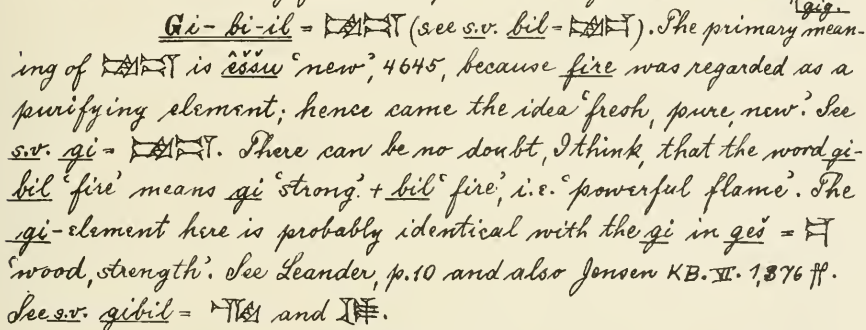 gig.
Gi-bi-il = (see s.v. bil = ). The primary mean-
ing of is êššu 'new', 4645, because fire was regarded as a
purifying element; hence came the idea 'fresh, pure, new'. See
s.v. gi = . There can be no doubt, I think, that the word gi-
bil 'fire' means gi 'strong' + bil 'fire', i.e. 'powerful flame'. The
gi-element here is probably identical with the gi in geš =
'wood, strength'. See Leander, p. 10 and also Jensen KB. VI. 1, 376 ff.
See s.v. gibil = and .